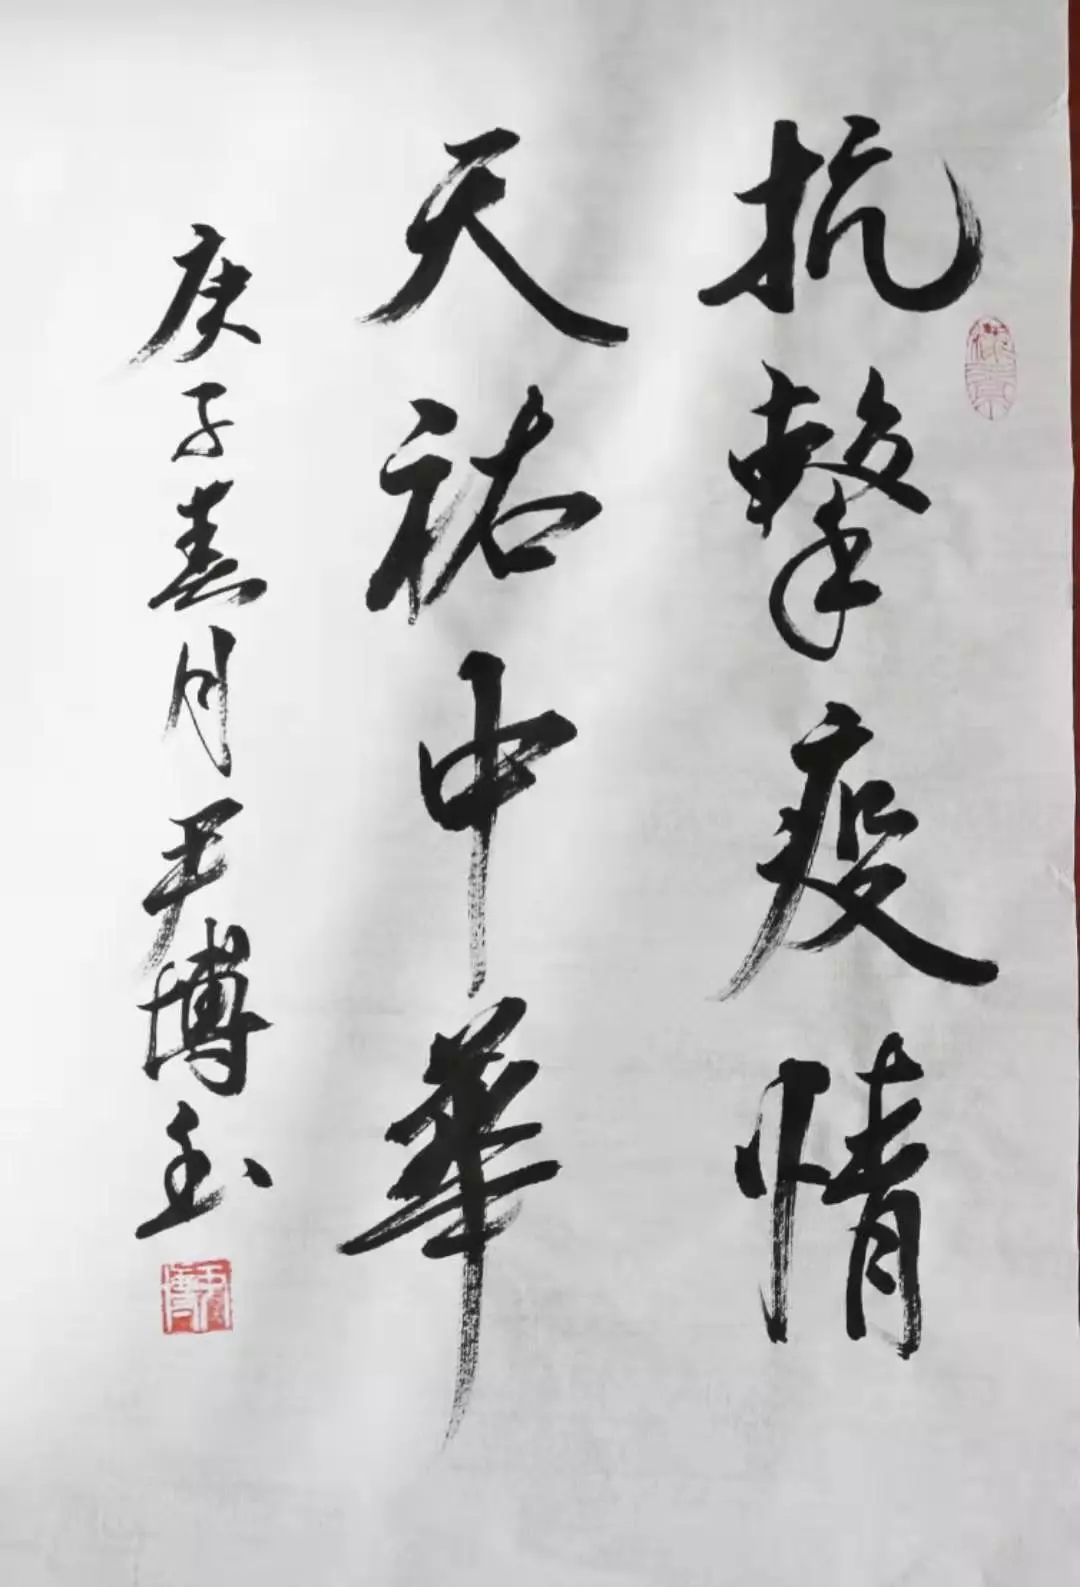 抗擊疫情
天祐中華
庚子春月尹博